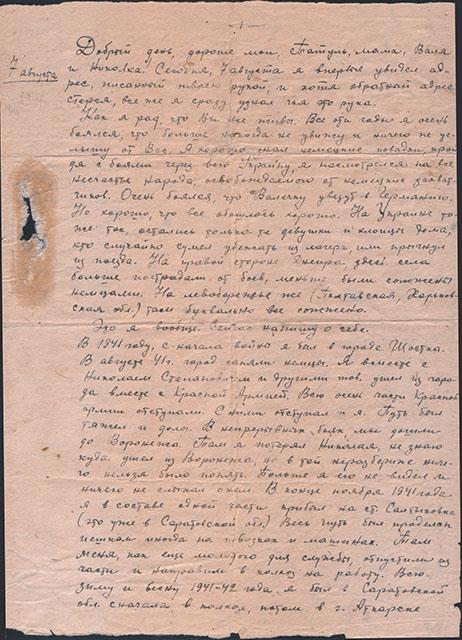 - 1 -
Добрый день, дорогие мои, Татуль, мама, Валя
7 августа
и Николка! Сегодня, 7 августа я впервые увидел ад-
рес, писанный твоею рукой, и хотя обратный адрес
стерся, все же я сразу узнал чья это рука.
Как я рад, что Вы все живы. Все эти годы я очень
боялся, что больше никогда не увижу и ничего не ус-
лышу от Вас. Я хорошо знал немецкие повадки, прой
дя с боями через всю Украйну, я насмотрелся на все
несчастья народа, освобождаемого от немецких захват-
чиков. Очень боялся, что Валечку увезут в Германию.
Но хорошо, что все обошлось хорошо. На Украине то
же так, остались только те девушки и хлопцы дома,
кто случайно сумел убежать из лагеря или прыгнул
из поезда. На правой стороне Днепра, здесь села
больше пострадали от боев, меньше были сожжены
немцами. На левобережье же (Полтавская, Харьков-
ская обл.) там буквально все сожжено.
Это я вообще. Сейчас напишу о себе.
В 1941 году, с начала войны я был в городе Шостка.
В августе 41 г. город заняли немцы. Я вместе с
Николаем Степановичем и другими тов. ушел из горо-
да вместе с Красной Армией. Всю осень части Красной
армии отступали. С ними отступал и я. Путь был
тяжел и долог. В непрерывных боях, мы дошли
до Воронежа. Там я потерял Николая, не знаю
куда ушел из Воронежа, но в той неразберихе ниче-
го нельзя было понять. Больше я его не видел и
ничего не слыхал о нем. В конце ноября 1941 года
я в составе одной части прибыл на ст. Салтыковка
(это уже в Саратовской обл.) Весь путь был проделан
пешком иногда на повозках и машинах. Там
меня, как еще молодого для службы, отпустили из
части и направили в колхоз на работу. Всю
зиму и весну 1941-42 года я был в Саратовской
обл. сначала в колхозе, потом в г. Аткарске